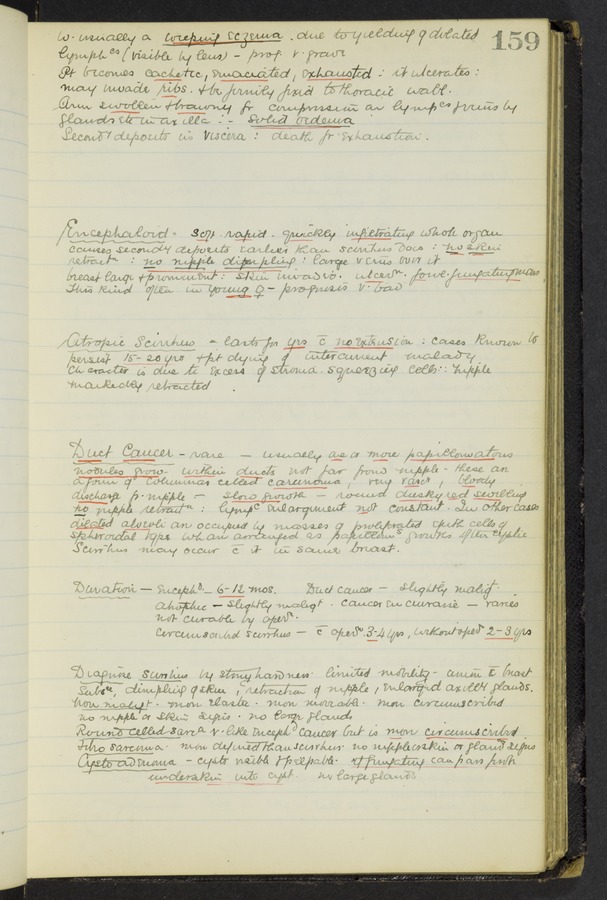 159
w. usually a weeping eczema. due to yielding of dilated
lymphcs (visible by lens) - prog v. grave
Pt becomes cachetic, emaciated, exhausted : it ulcerates :
may invade ribs. & be firmly fixd to thoracic wall.
Arm swollen & brawny fr compression on lympcs & veins by
glands etc in axilla :- Solid oedema
Secondy deposits in viscera : death fr exhaustion.
Encephaloid - Soft. rapid. quickly infiltrating whole organ
causes secondy deposits earlier than scirrhus does : no skin
retractn : no nipple dimpling : large veins over it
breast large & prominent : skin invaded. ulcern. foul fungating mass
This kind often in young ♀ - prognosis v. bad
Atropic Scirrhus - lasts for yrs c̄ no extension : cases known to
persist 15-20 yrs & pt dying of intercurrent malady
character is due to excess of stroma squeezing cells :: nipple
markedly retracted
Duct Cancer - rare - usually one or more papillomatous
nodules grow within ducts not far from nipple - these are
a form of columnar celled carcinoma, very vascr, bloody
discharge fr. nipple - slow growth - round dusky red swelling
no nipple retractn : lympc enlargement not constant. In other cases
dilated alveoli are occupied by masses of proliferated epith cells of
spheroidal type wh are arranged as papilloms growths often cystic
Scirrhus may occur c̄ it in same breast.
Duration - Encephd - 6-12 mos. Duct cancer - slightly malig.
atrophic - slightly maligt. cancer en cuirasse - varies
not curable by opern.
Circumscribd scirrhus - c̄ opern 3-4 yrs, without opern 2-3 yrs
Diagnose scirrhus by stony hardness limited mobility - union c̄ breast
Subce, dimpling of skin, retraction of nipple, enlarged axilly glands.
Non maligt. more elastic. more moveable. more circumscribd
no nipple or skin signs. no large glands
Round celled sarca v. like encephd cancer but is more circumscribd
Fibro sarcoma. more defined than scirrhus no nipple or skin or gland signs
Cysto adenoma - cysts visible & palpable. if fungating can pass probe
underskin into cyst. no large glands